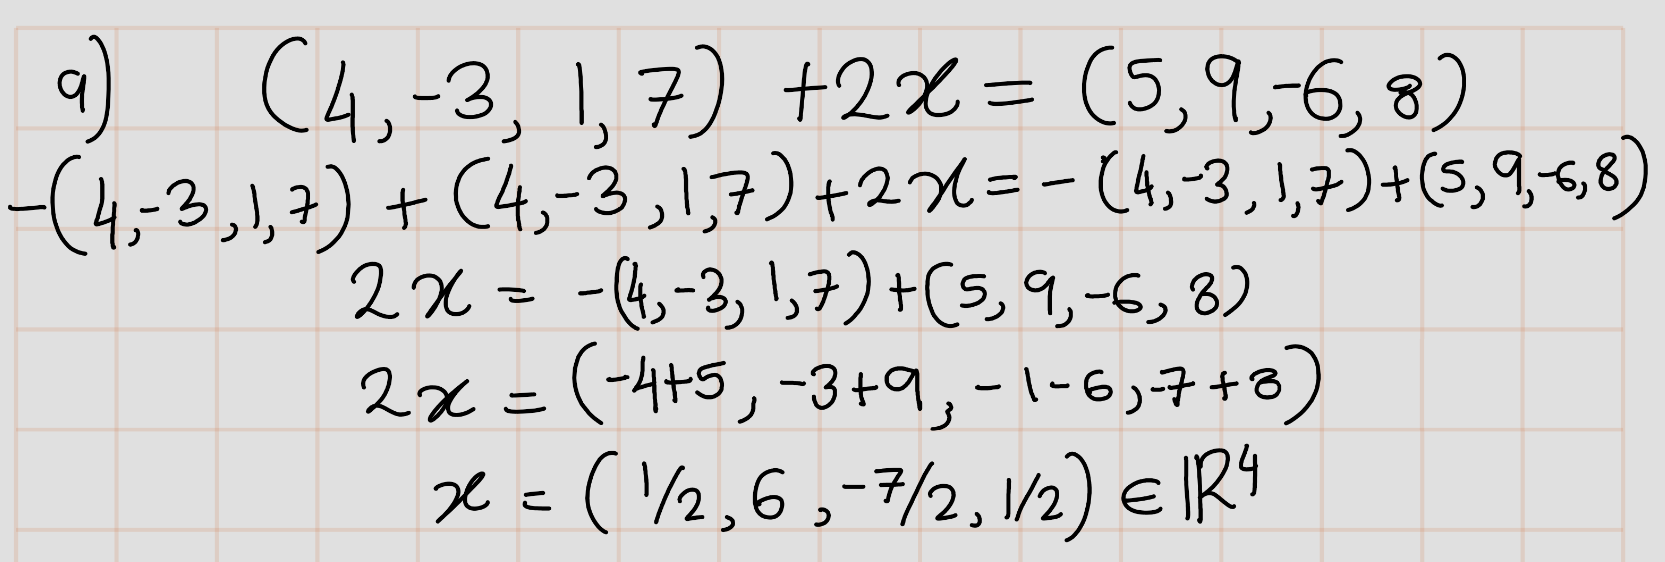 9) (4, -3, 1, 7) + 2x = (5, 9, -6, 8)
-(4, -3, 1, 7) + (4, -3, 1, 7) + 2x = - (4, -3, 1, 7) + (5, 9, -6, 8)
2x = -(4, -3, 1, 7) + (5, 9, -6, 8)
2x = (-4+5, -3+9, -1-6, -7+8)
x = (1/2, 6, -7/2, 1/2) ∈ ℝ⁴